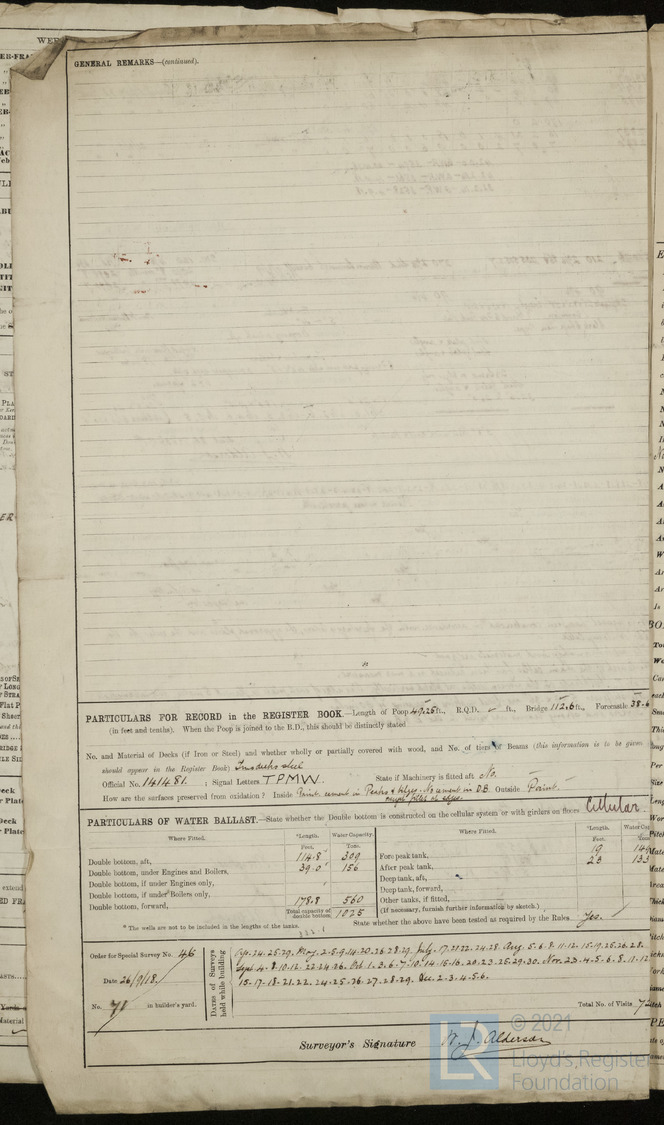 GENERAL REMARKS—(continued).
PARTICULARS FOR RECORD in the REGISTER BOOK.—Length of Poop 49.25 ft., R.Q.D. ✓ ft., Bridge 112.6 ft., Forecastle 38.6
(in feet and tenths). When the Poop is joined to the B.D., this should be distinctly stated
No. and Material of Decks (if Iron or Steel) and whether wholly or partially covered with wood, and No. of tiers of Beams (this information is to be given
should appear in the Register Book) Two decks steel
Official No. 141481. ; Signal Letters T P M W. State if Machinery is fitted aft No.
How are the surfaces preserved from oxidation? Inside Paint. cement in Peaks & bilges. No cement in D.B. Outside Paint.
PARTICULARS OF WATER BALLAST.—State whether the Double bottom is constructed on the cellular system or with girders on floors Cellular.
Where Fitted. *Length. Water Capacity. Where Fitted. *Length. Water Cap
Feet. Tons. Feet. Tons
Double bottom, aft, 114.8 309 Fore peak tank, 19 149
Double bottom, under Engines and Boilers, 39.0 156 After peak tank, 23 133
Double bottom, if under Engines only, Deep tank, aft,
Double bottom, if under Boilers only, Deep tank, forward,
Double bottom, forward, 178.8 560 Other tanks, if fitted,
Total capacity of double bottom 1025 (If necessary, furnish further information by sketch.)
* The wells are not to be included in the lengths of the tanks. State whether the above have been tested as required by the Rules Yes.
Order for Special Survey No. 46
Date 26/9/18.
No. 71 in builder's yard.
Dates of Surveys held while building
Apr. 24.25.29. May. 2.5.9.14.20.26.28.29. July. 17.21.22.24.28. Aug. 5.6.8.11.12.15.19.25.26.28.
Sept. 4.8.10.12.22.24.26. Oct. 1.3.6.7.10.14.15.16.20.23.25.29.30. Nov. 23.4.5.6.8.11.12
15.17.18.21.22.24.25.26.27.28.29. Dec. 2.3.4.5.6.
Total No. of Visits 72
Surveyor's Signature W. J. Alderson
LR
© 2021
Lloyd's Register
Foundation